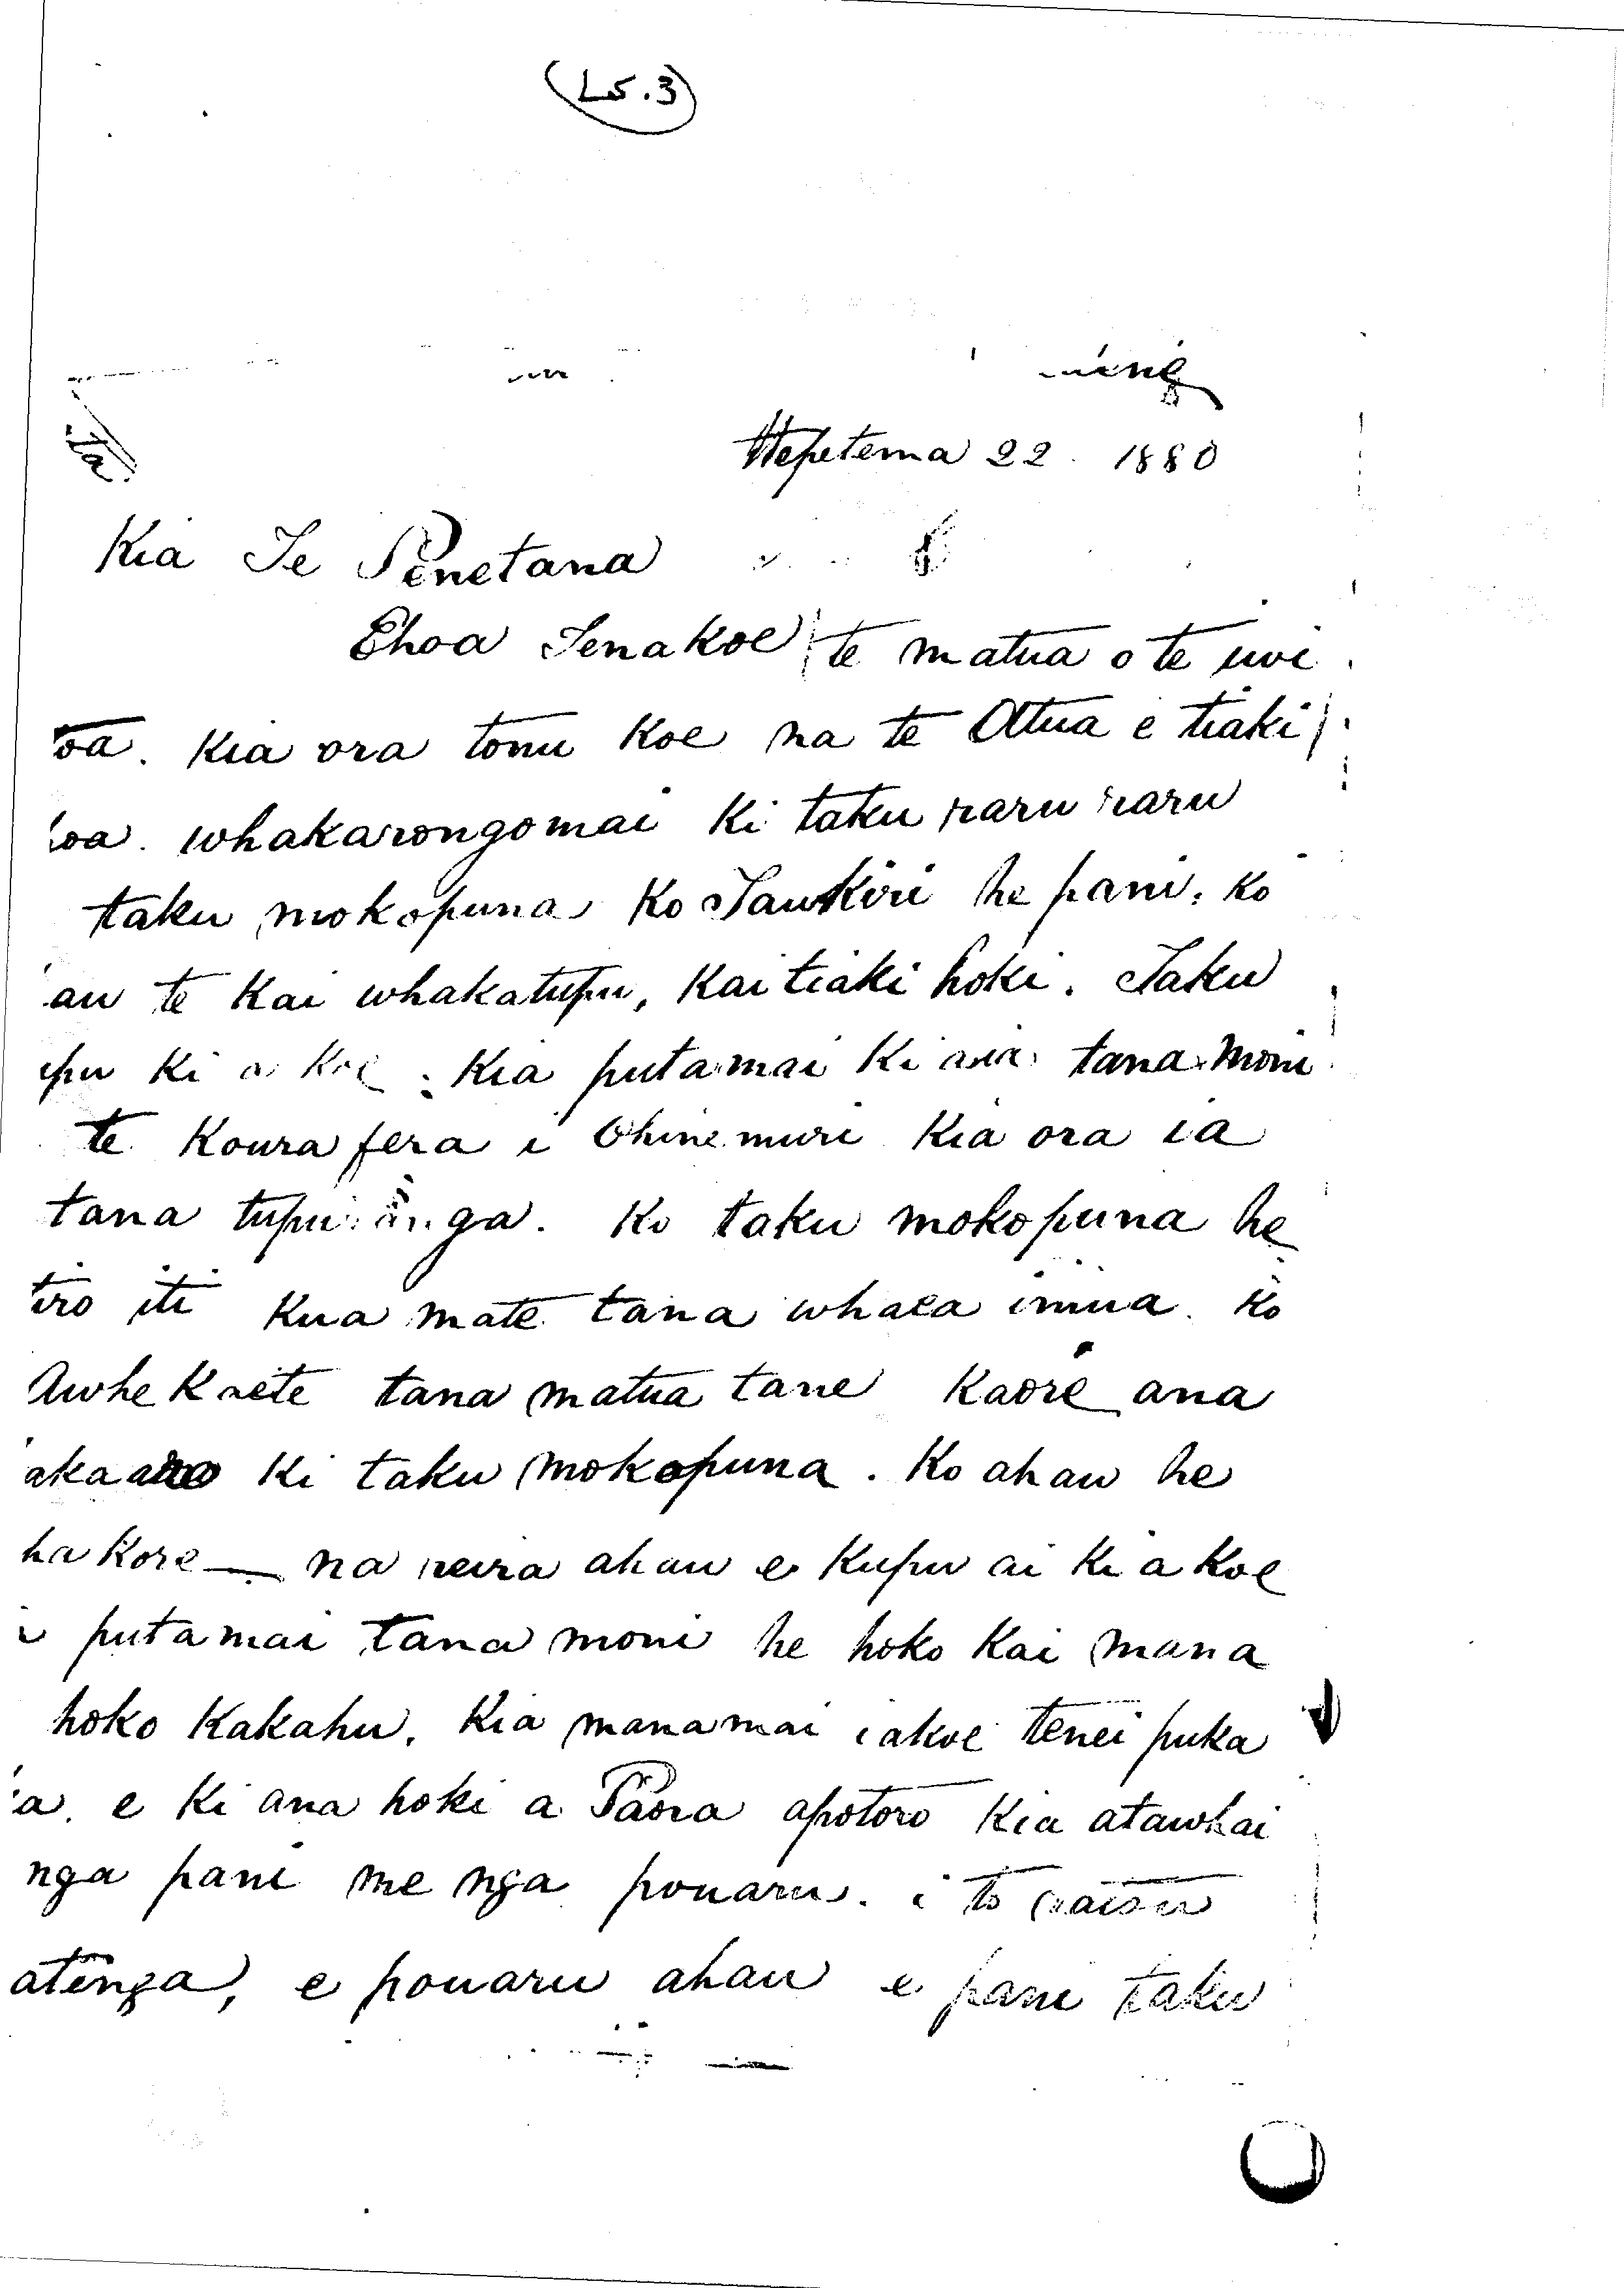 (L5.3)
Hepetema 22. 1880
Kia Te Penetana
Ehoa Tenakoe te matua o te iwi
oa. Kia ora tonu koe na te Atua e tiaki
oa. whakarongomai ki taku raru raru
taku mokopuna ko he pani: ko
au te kai whakatupu, kai tiaki hoki. Taku
upu ki a koe: kia putamai ki aia tana moni
te Koura fera i Ohinemuri kia ora ia
tana tupuranga. Ko taku mokopuna he
iro iti kua mate tana whaea imua. Ko
tana matua tane kaore ana
aka aro ki taku mokopuna. Ko ahau he
ha kore — na reira ahau e kupu ai ki a koe
putamai tana moni he hoko kai mana
hoko kakahu. Kia manamai iakoe tenei puka
a. e ki ana hoki a Paora apotoro kia atawhai
nga pani me nga pouaru. i to
atenga, e pouaru ahau e pani taku